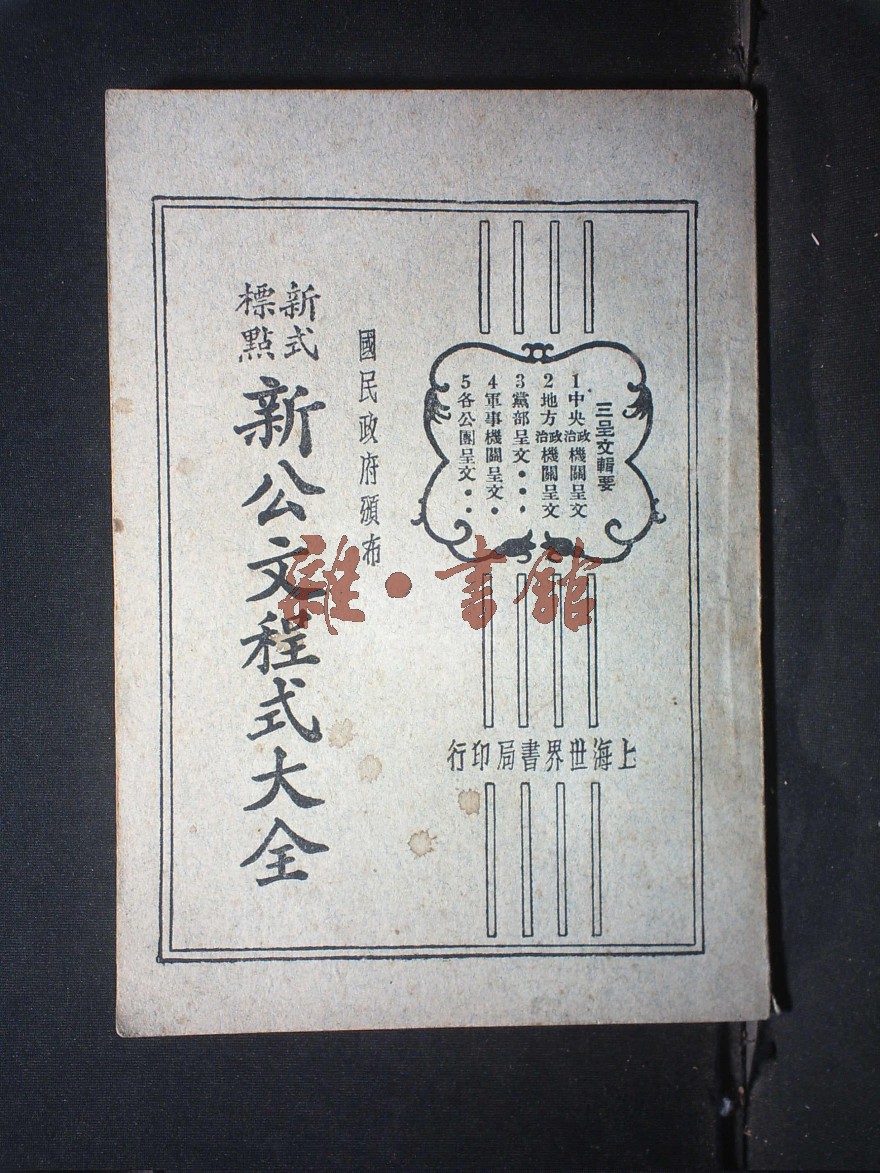 三呈文輯要
1中央政治機關呈文
2地方政治機關呈文
3黨部呈文・・・
4軍事機關呈文・
5各公團呈文・・
國民政府頒布
新式標點
新公文程式大全
上海世界書局印行
雜・書館